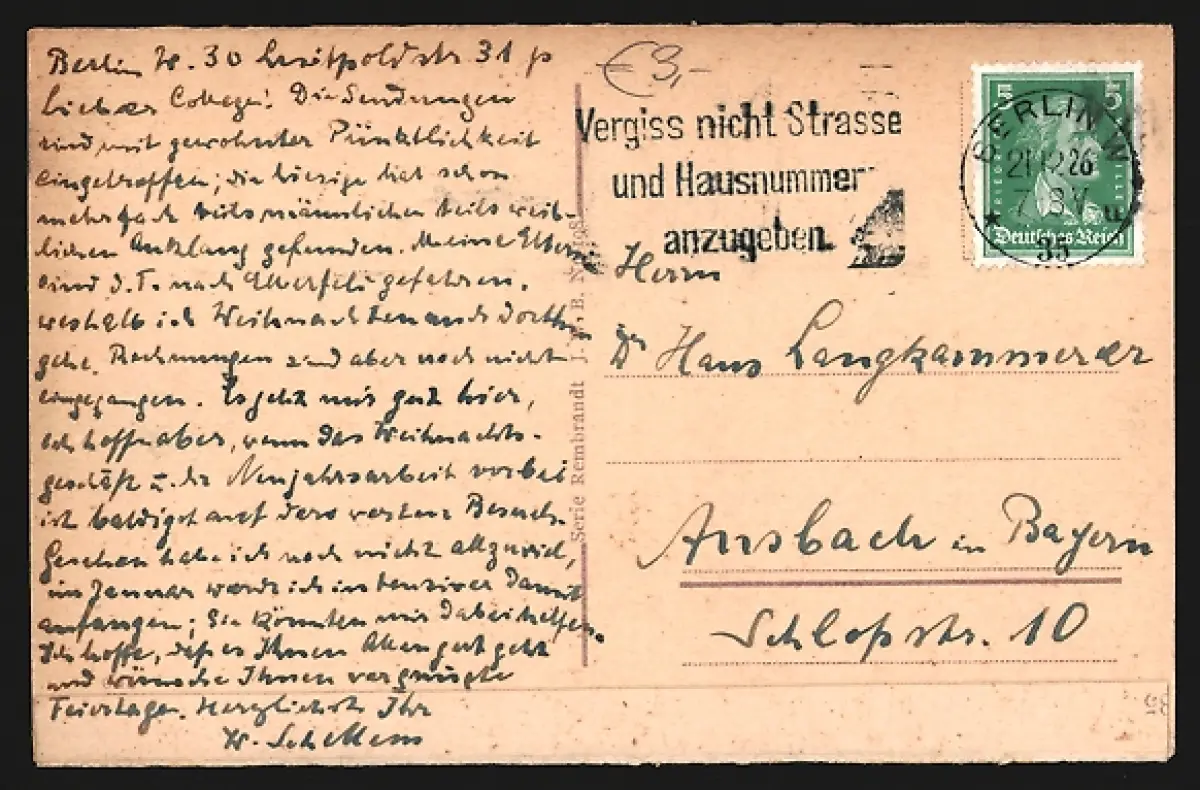 Berlin W. 30 Luitpoldstr 31 p
Lieber College! Die Sendungen
sind mit gewohnter Pünktlichkeit
eingetroffen; die hiesige hat schon
mehrfach teils männlichen teils weib-
lichen Anklang gefunden. Meine Eltern
sind d. T. nach Elberfeld gefahren,
weshalb ich Weihnachten auch dorthin
gehe. Rechnungen sind aber noch nicht
eingegangen. Es geht mir gut hier,
Ich hoffe aber, wenn das Weihnachts-
geschäft u. die Neujahrsarbeit vorbei
ist baldigst auf Besuch.
Gesehen habe ich noch nicht allzuviel,
im Januar werde ich intensiver damit
anfangen; Sie könnten mir dabei helfen.
Ich hoffe, daß es Ihnen Allen gut geht
und wünsche Ihnen vergnügte
Feiertage. Herzlichst Ihr
W. Schellens
€3,-
Vergiss nicht Strasse
und Hausnummer
anzugeben.
5 5
BERLIN W
21.12.26
7-8V
★ 35 E
Deutsches Reich
Herrn
Dr Hans Langkammerer
Ansbach in Bayern
Schloßstr. 10
Serie Rembrandt